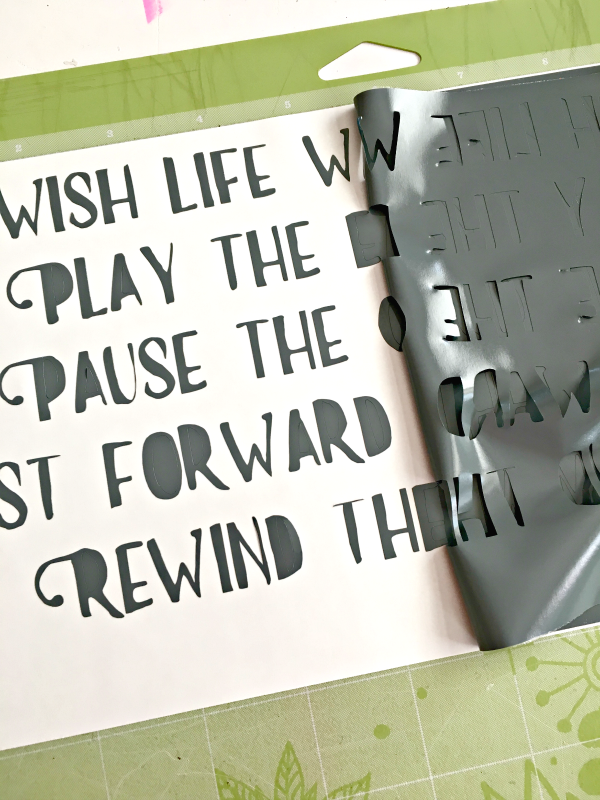 2 3 4 5 7 8
WISH LIFE W
PLAY THE
PAUSE THE
ST FORWARD
REWIND THE